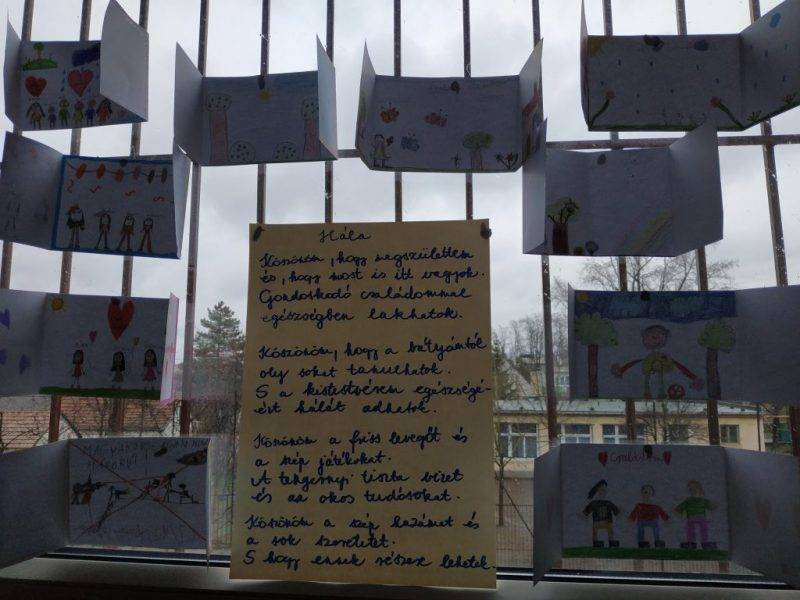 Hála
Köszönöm, hogy megszülettem
és, hogy most is itt vagyok.
Gondoskodó családommal
egészségben lakhatok.
Köszönöm, hogy a bátyámtól
oly sokat tanulhatok.
S a kistestvérem egészségé-
ért hálát adhatok.
Köszönöm a friss levegőt és
a szép játékokat.
A tengernyi tiszta vizet
és az okos tudósokat.
Köszönöm a szép hazámat és
a sok szeretetet.
S hogy ennek része lehetek.
Családom